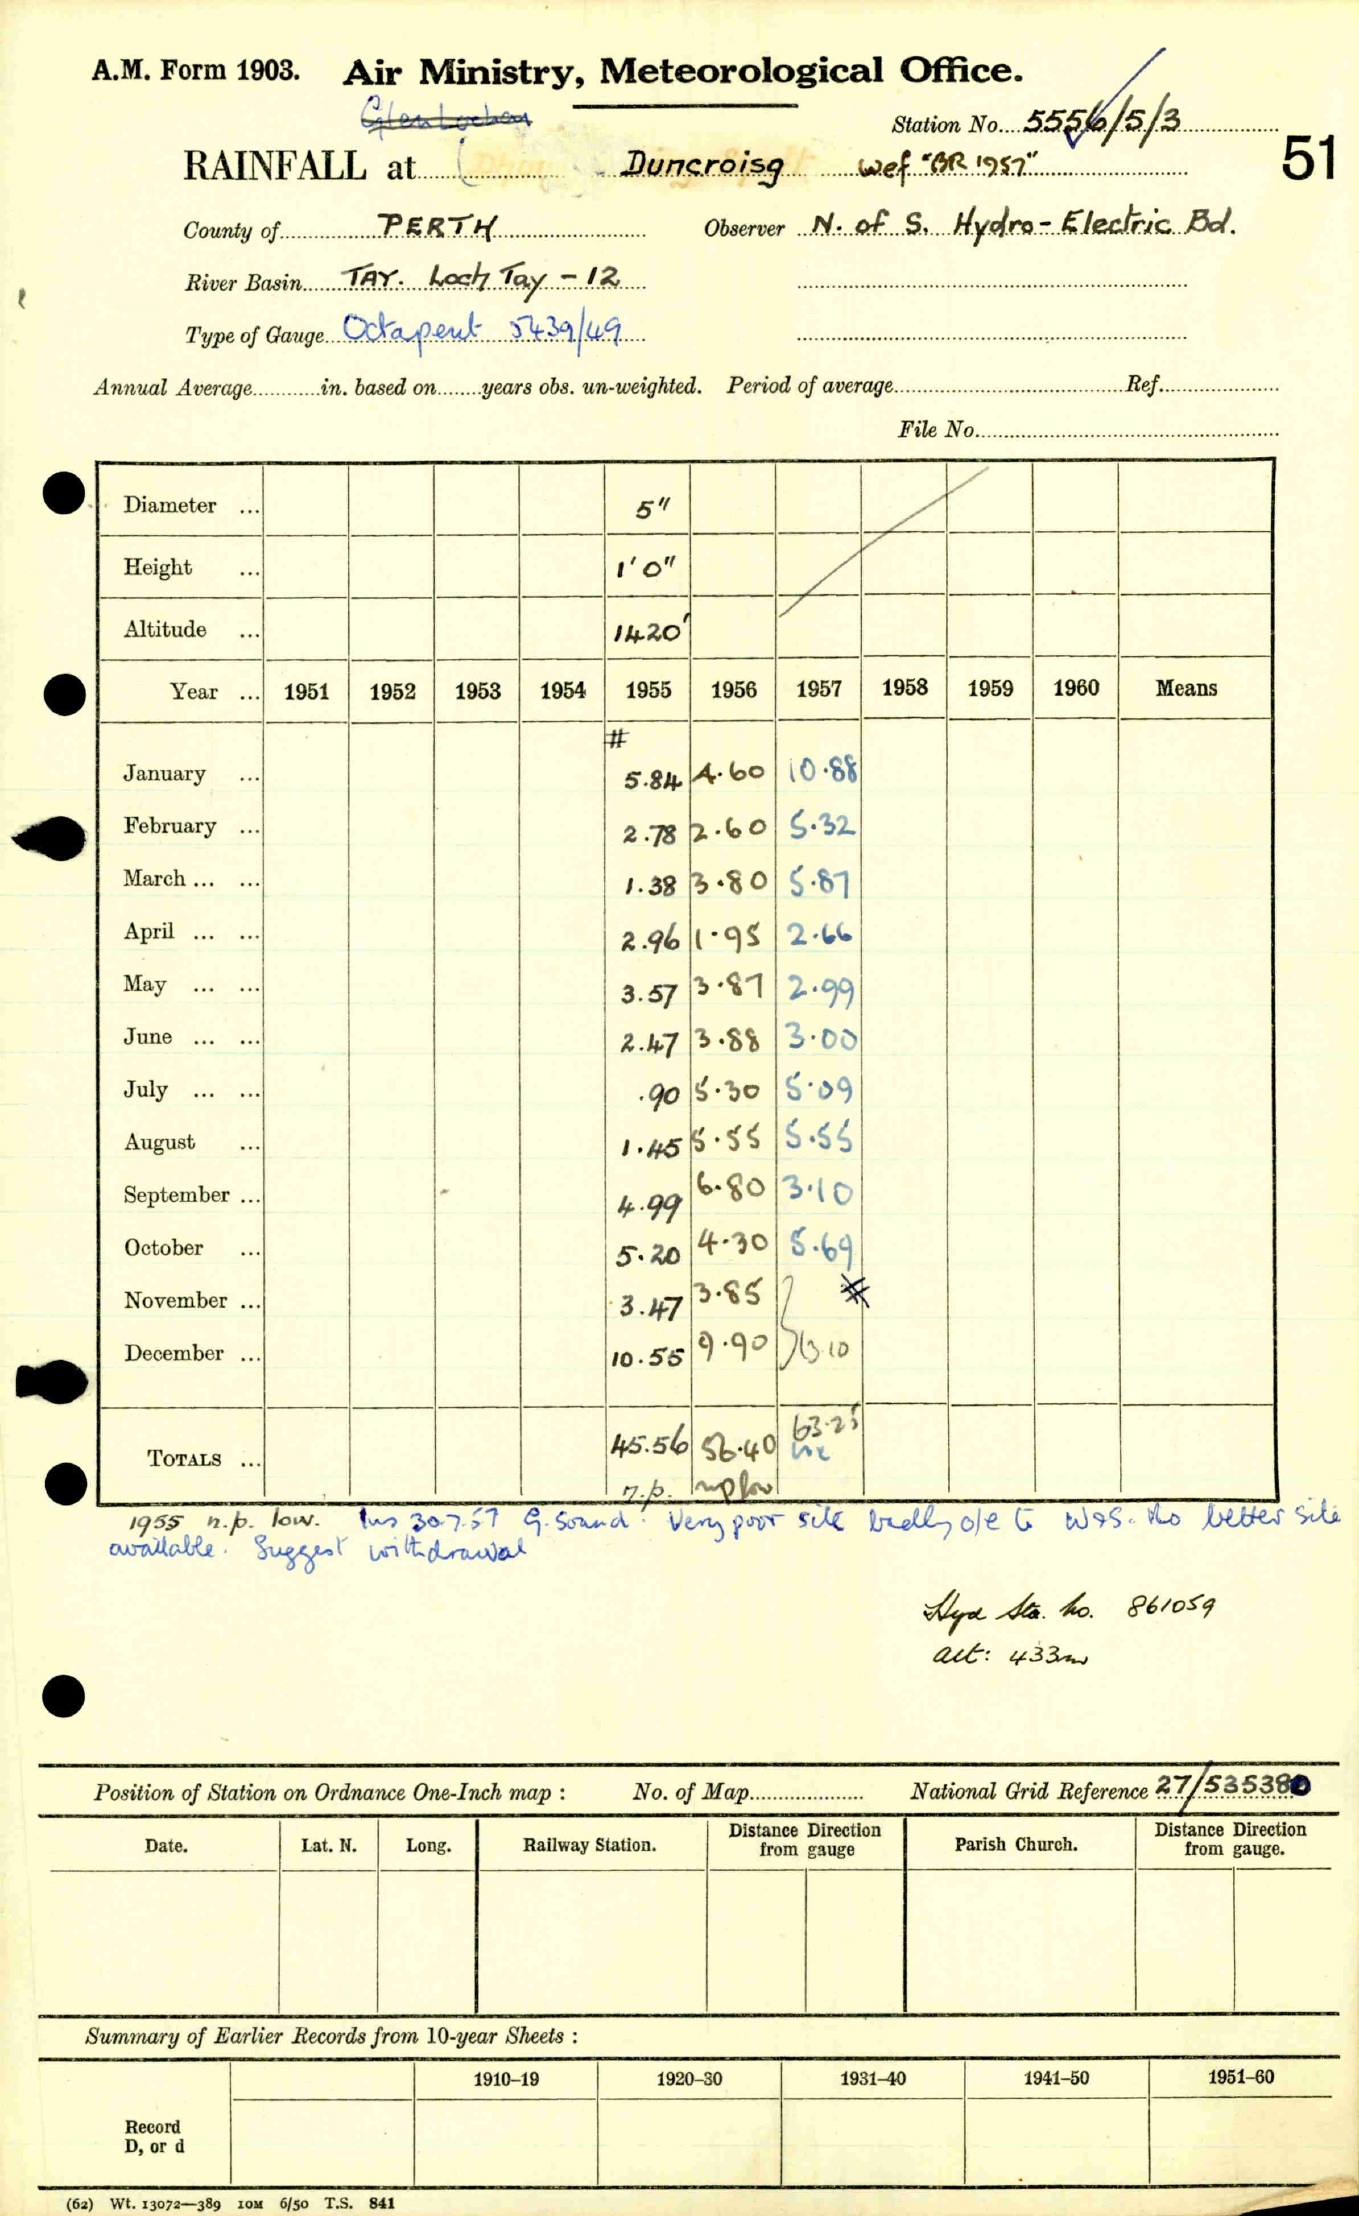 A.M. Form 1903. Air Ministry, Meteorological Office.
Glenlochay
Station No. 5556/5/3
51
RAINFALL at Duncroisg wef "BR 1957"
County of PERTH Observer N. of S. Hydro-Electric Bd.
River Basin TAY. Loch Tay - 12
Type of Gauge Octapent 5439/49
Annual Average in. based on years obs. un-weighted. Period of average Ref.
File No.
Diameter ... 5"
Height ... 1' 0"
Altitude ... 1420'
Year ... 1951 1952 1953 1954 1955 1956 1957 1958 1959 1960 Means
#
January ... 5.84 4.60 10.88
February ... 2.78 2.60 5.32
March ... ... 1.38 3.80 5.87
April ... ... 2.96 1.95 2.66
May ... ... 3.57 3.87 2.99
June ... ... 2.47 3.88 3.00
July ... ... .90 5.30 5.09
August ... 1.45 5.55 5.55
September ... 4.99 6.80 3.10
October ... 5.20 4.30 5.69
November ... 3.47 3.85 #
December ... 10.55 9.90 13.10
TOTALS ... 45.56 56.40 63.25
n.p. np low
1955 n.p. low. Ins 30.7.57 G. Sound. Very poor site badly o/e to W&S. No better site
available. Suggest withdrawal
Hyd Sta. No. 861059
alt: 433m
Position of Station on Ordnance One-Inch map : No. of Map National Grid Reference 27/535380
Date. Lat. N. Long. Railway Station. Distance from Direction gauge Parish Church. Distance from Direction gauge.
Summary of Earlier Records from 10-year Sheets :
1910–19 1920–30 1931–40 1941–50 1951–60
Record
D, or d
(62) Wt. 13072—389 10M 6/50 T.S. 841